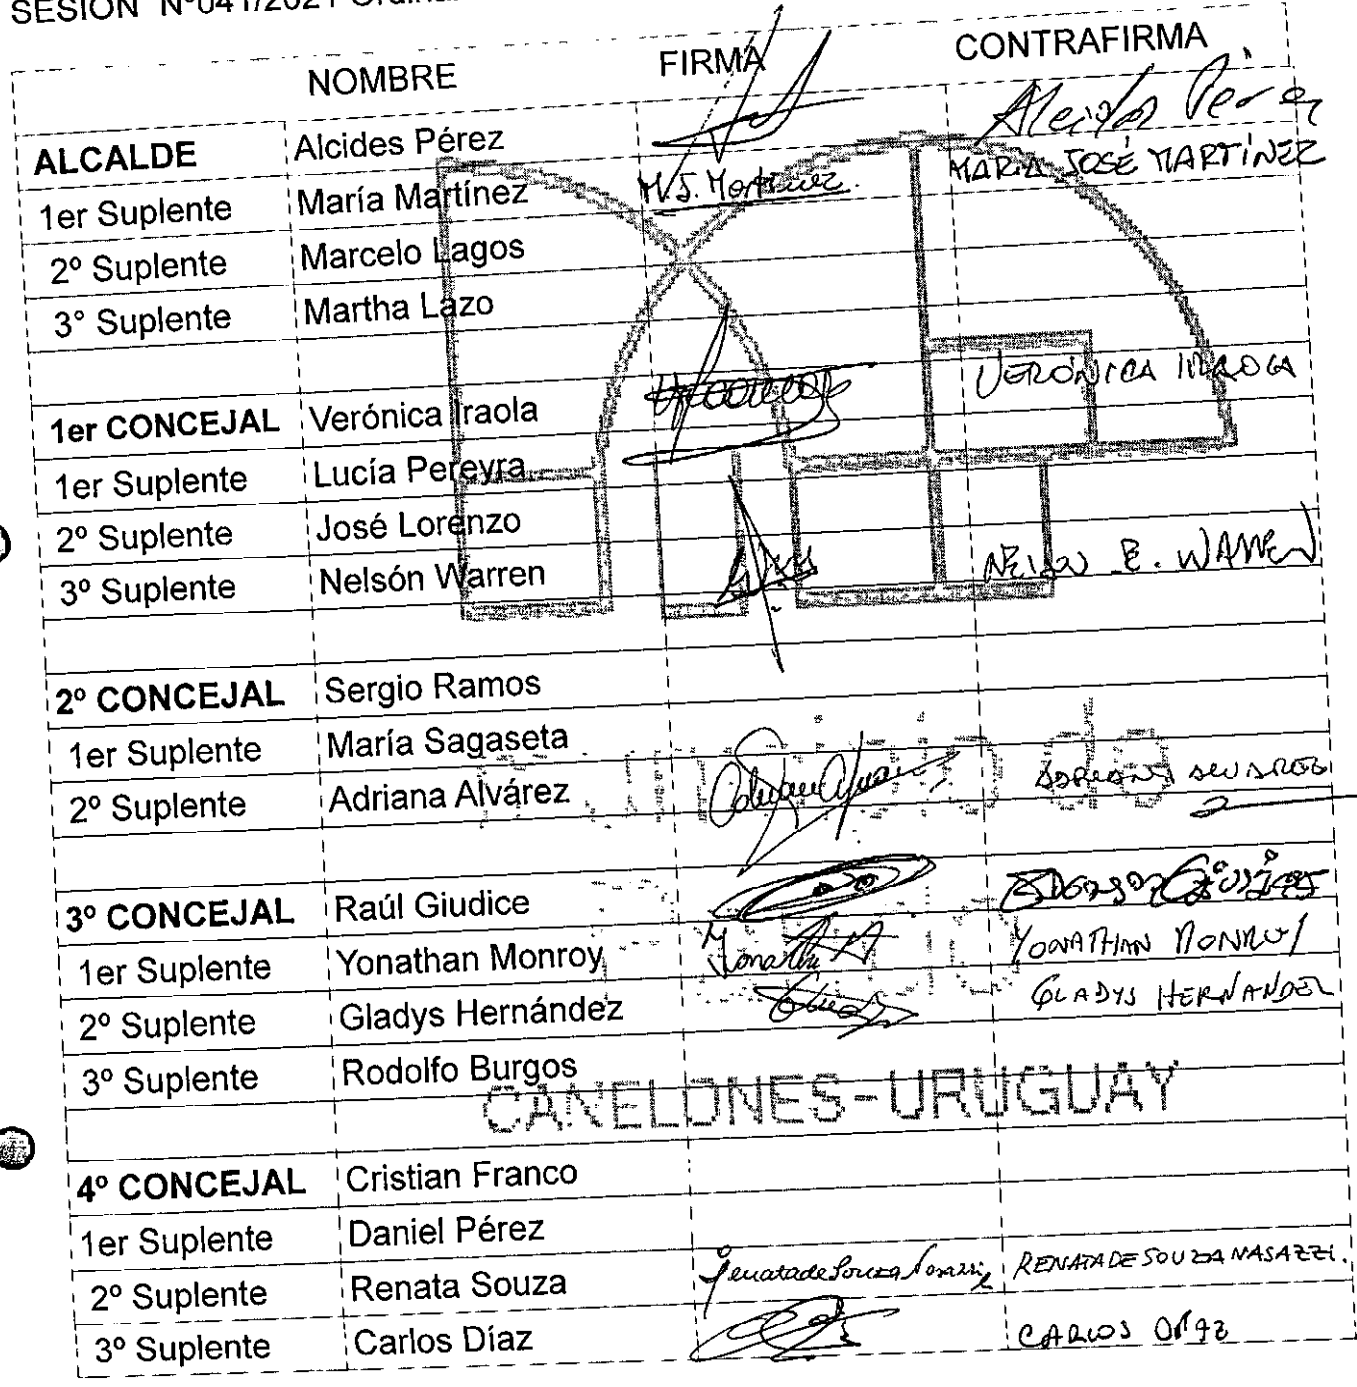 SESIÓN Nº041/2021
NOMBRE FIRMA CONTRAFIRMA
ALCALDE Alcides Pérez Alcides Pérez
1er Suplente María Martínez M.J. Martínez. MARÍA JOSÉ MARTÍNEZ
2º Suplente Marcelo Lagos
3° Suplente Martha Lazo
1er CONCEJAL Verónica Iraola VERÓNICA IRAOLA
1er Suplente Lucía Pereyra
2º Suplente José Lorenzo
3º Suplente Nelsón Warren NELSON E. WARREN
2º CONCEJAL Sergio Ramos
1er Suplente María Sagaseta
2º Suplente Adriana Alvárez ADRIANA ALVAREZ
3º CONCEJAL Raúl Giudice
1er Suplente Yonathan Monroy Yonathan YONATHAN MONROY
2º Suplente Gladys Hernández GLADYS HERNANDEZ
3º Suplente Rodolfo Burgos
CANELONES-URUGUAY
4º CONCEJAL Cristian Franco
1er Suplente Daniel Pérez
2º Suplente Renata Souza Renata de Souza Nasazzi RENATA DE SOUZA NASAZZI.
3º Suplente Carlos Díaz CARLOS DÍAZ